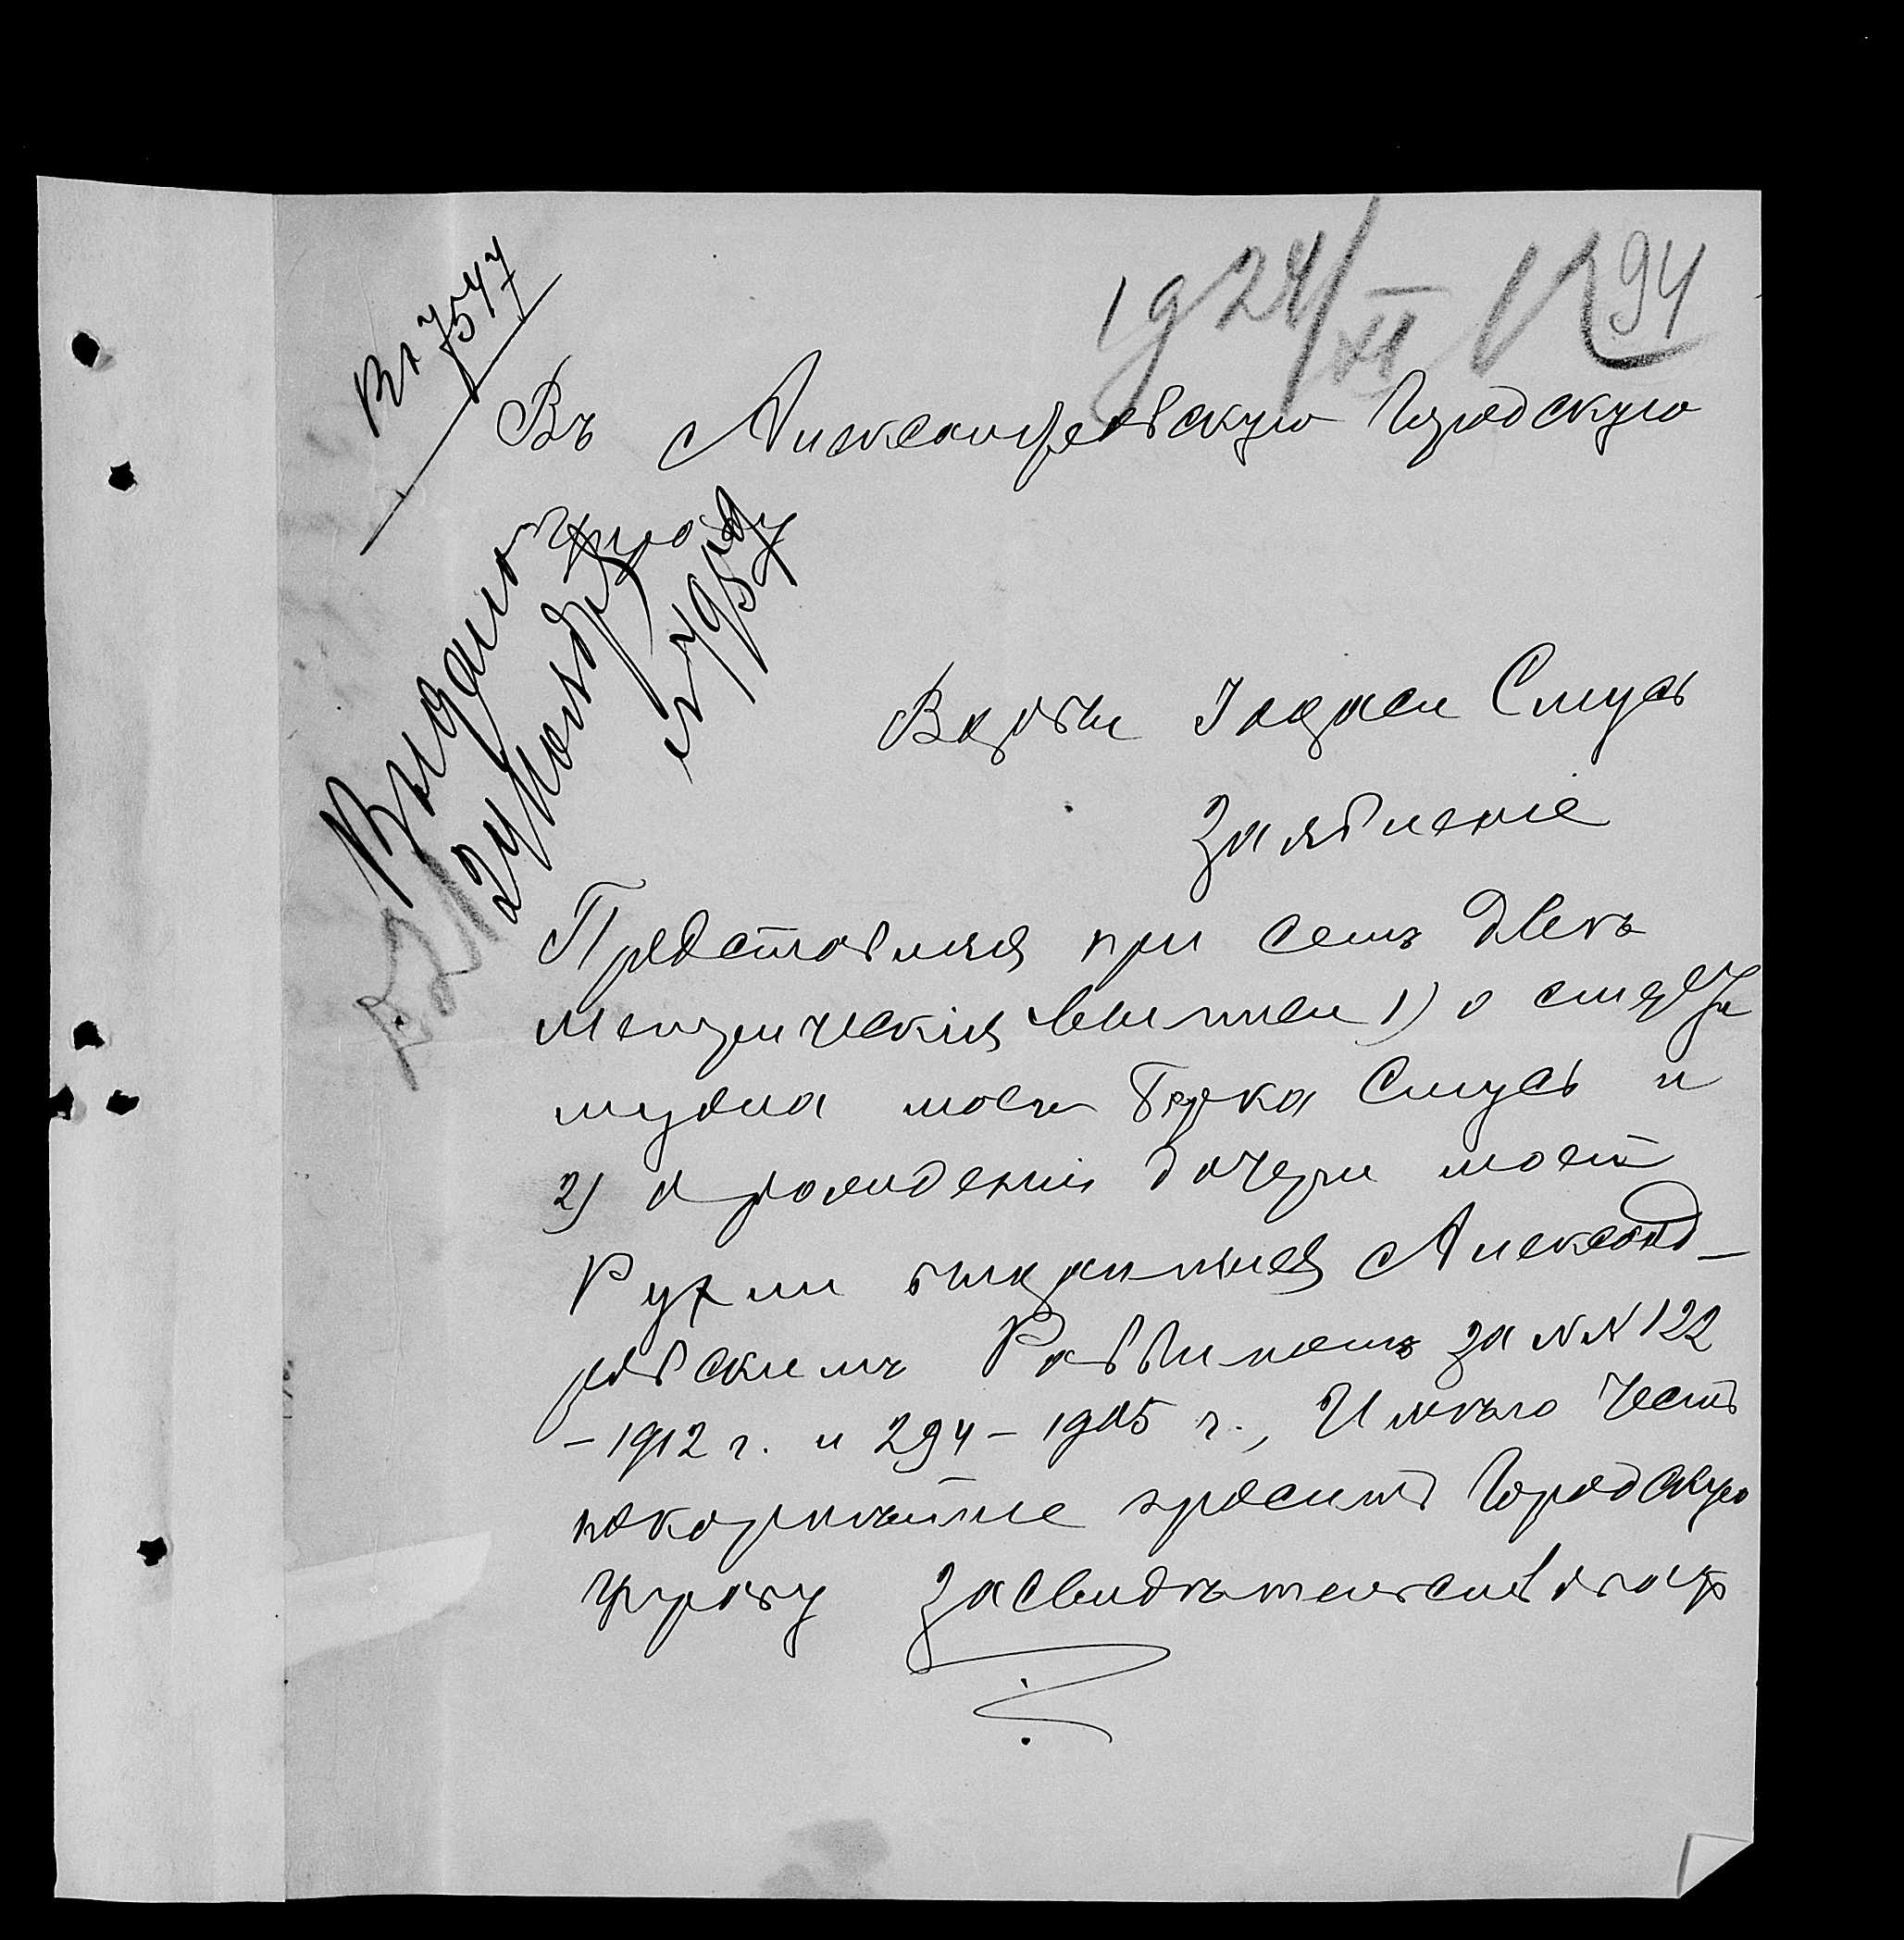 Вх 7547
1924/XI 12 94
Въ Александровскую Городскую
Управу
Выдано
24 Ноября
№ 7959
Вдовы Смусь
Заявленіе
Представляя при семъ две
метрическія выписи 1) о смерти
мужа моего Берка Смусь и
2) о рожденіи дочери моей
Рухли выданныя Александ-
ровскимъ Раввиномъ за №№ 122
- 1912 г. и 294 - 1905 г., Имѣю честь
покорнейше просить Городскую
Управу засвидѣтельствовать